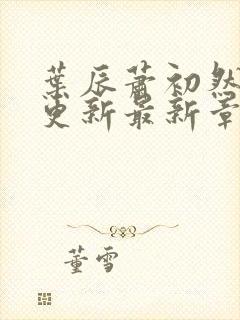 葉辰蕭初然
更新最新章
董雪